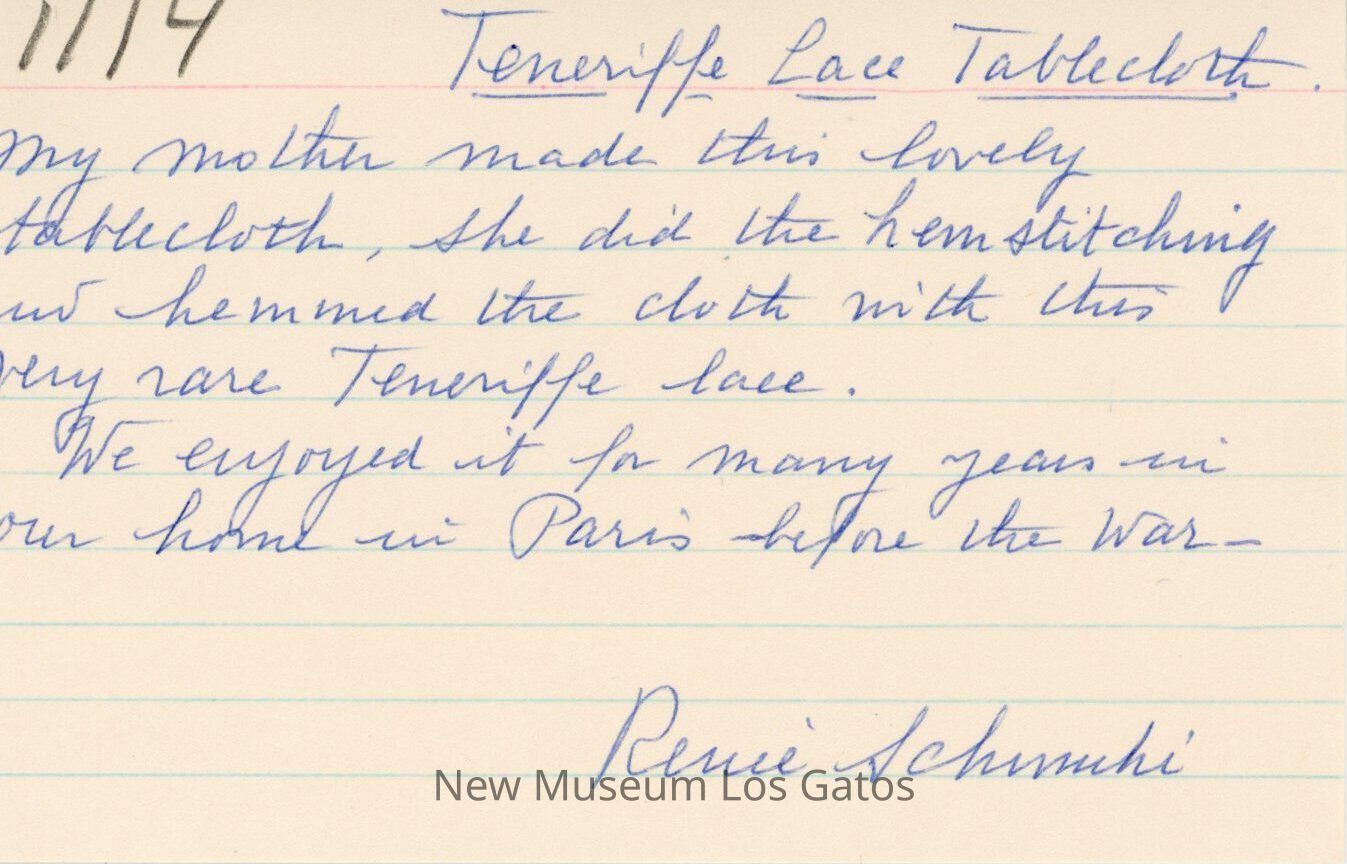 Teneriffe Lace Tablecloth.
My mother made this lovely
tablecloth, she did the hemstitching
and hemmed the cloth with this
very rare Teneriffe lace.
We enjoyed it for many years in
our home in Paris before the War-
Renée
New Museum Los Gatos